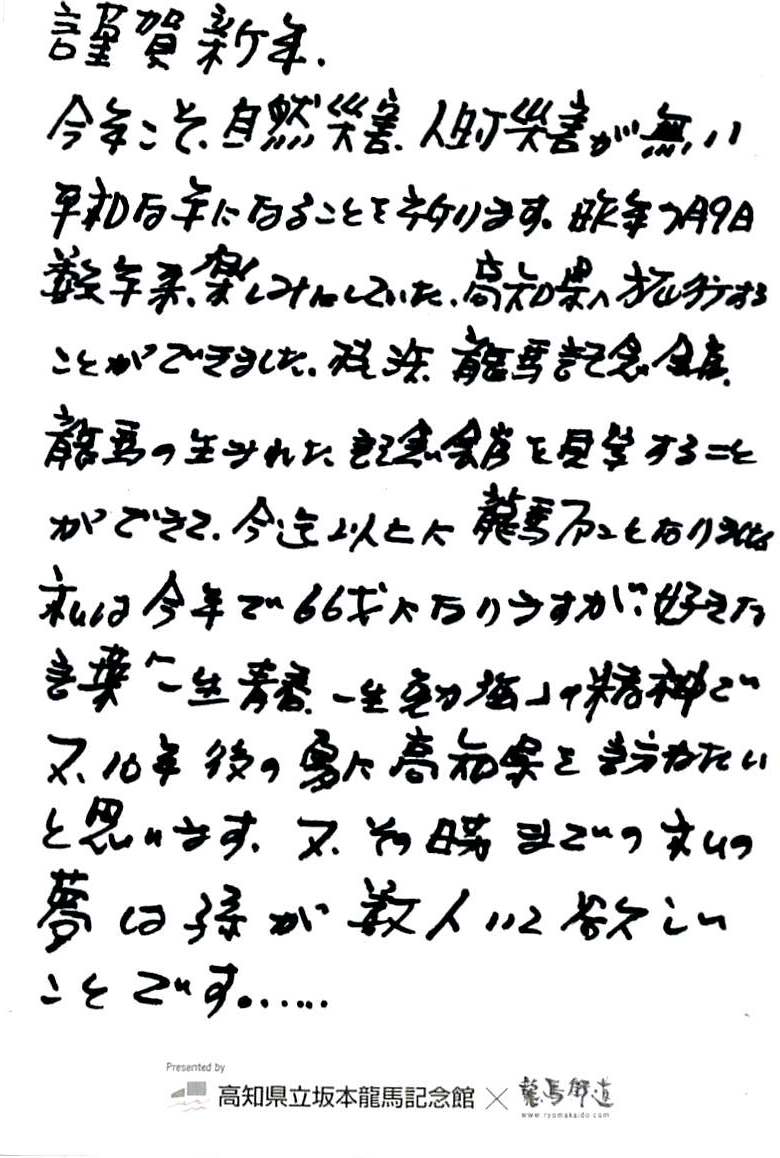 謹賀新年.
今年こそ、自然災害、人的災害が無い
平和な年になることを祈ります。昨年の月9日
数年来、楽しみにしていた、高知県へ旅行する
ことができました。桂浜、龍馬記念館、
龍馬の生まれた記念館を見学すること
ができて、今迄以上に龍馬ファンとなりました
私は今年で66才になりますが、好きな
言葉「一生青春、一生勉強」の精神で
又、10年後の夏に高知県を訪ねたい
と思います。又、その時までの私の
夢は孫が数人いて欲しい
ことです。.....
Presented by
高知県立坂本龍馬記念館×龍馬街道
www.ryomakaido.com